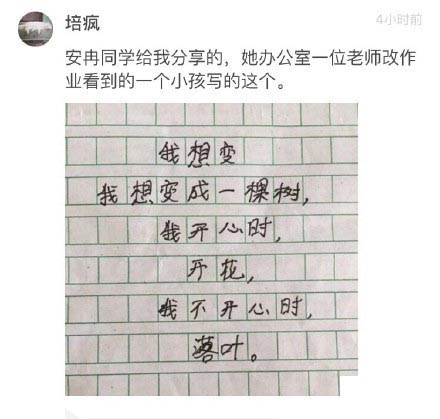 培疯
4小时前
安冉同学给我分享的，她办公室一位老师改作
业看到的一个小孩写的这个。
我想变
我想变成一棵树，
我开心时，
开花，
我不开心时，
落叶。